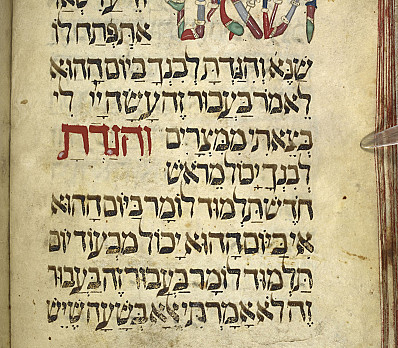 את פתח לו
שנא והגדת לבנך ביום ההוא
לאמר בעבור זה עשה יי לי
בצאתי ממצרים והגדת
לבנך יכול מראש
חדש תלמוד לומר ביום ההוא
אי ביום ההוא יכול מבעוד יום
תלמוד לומר בעבור זה בעבור
זה לא אמרתי אלא בשעה שיש